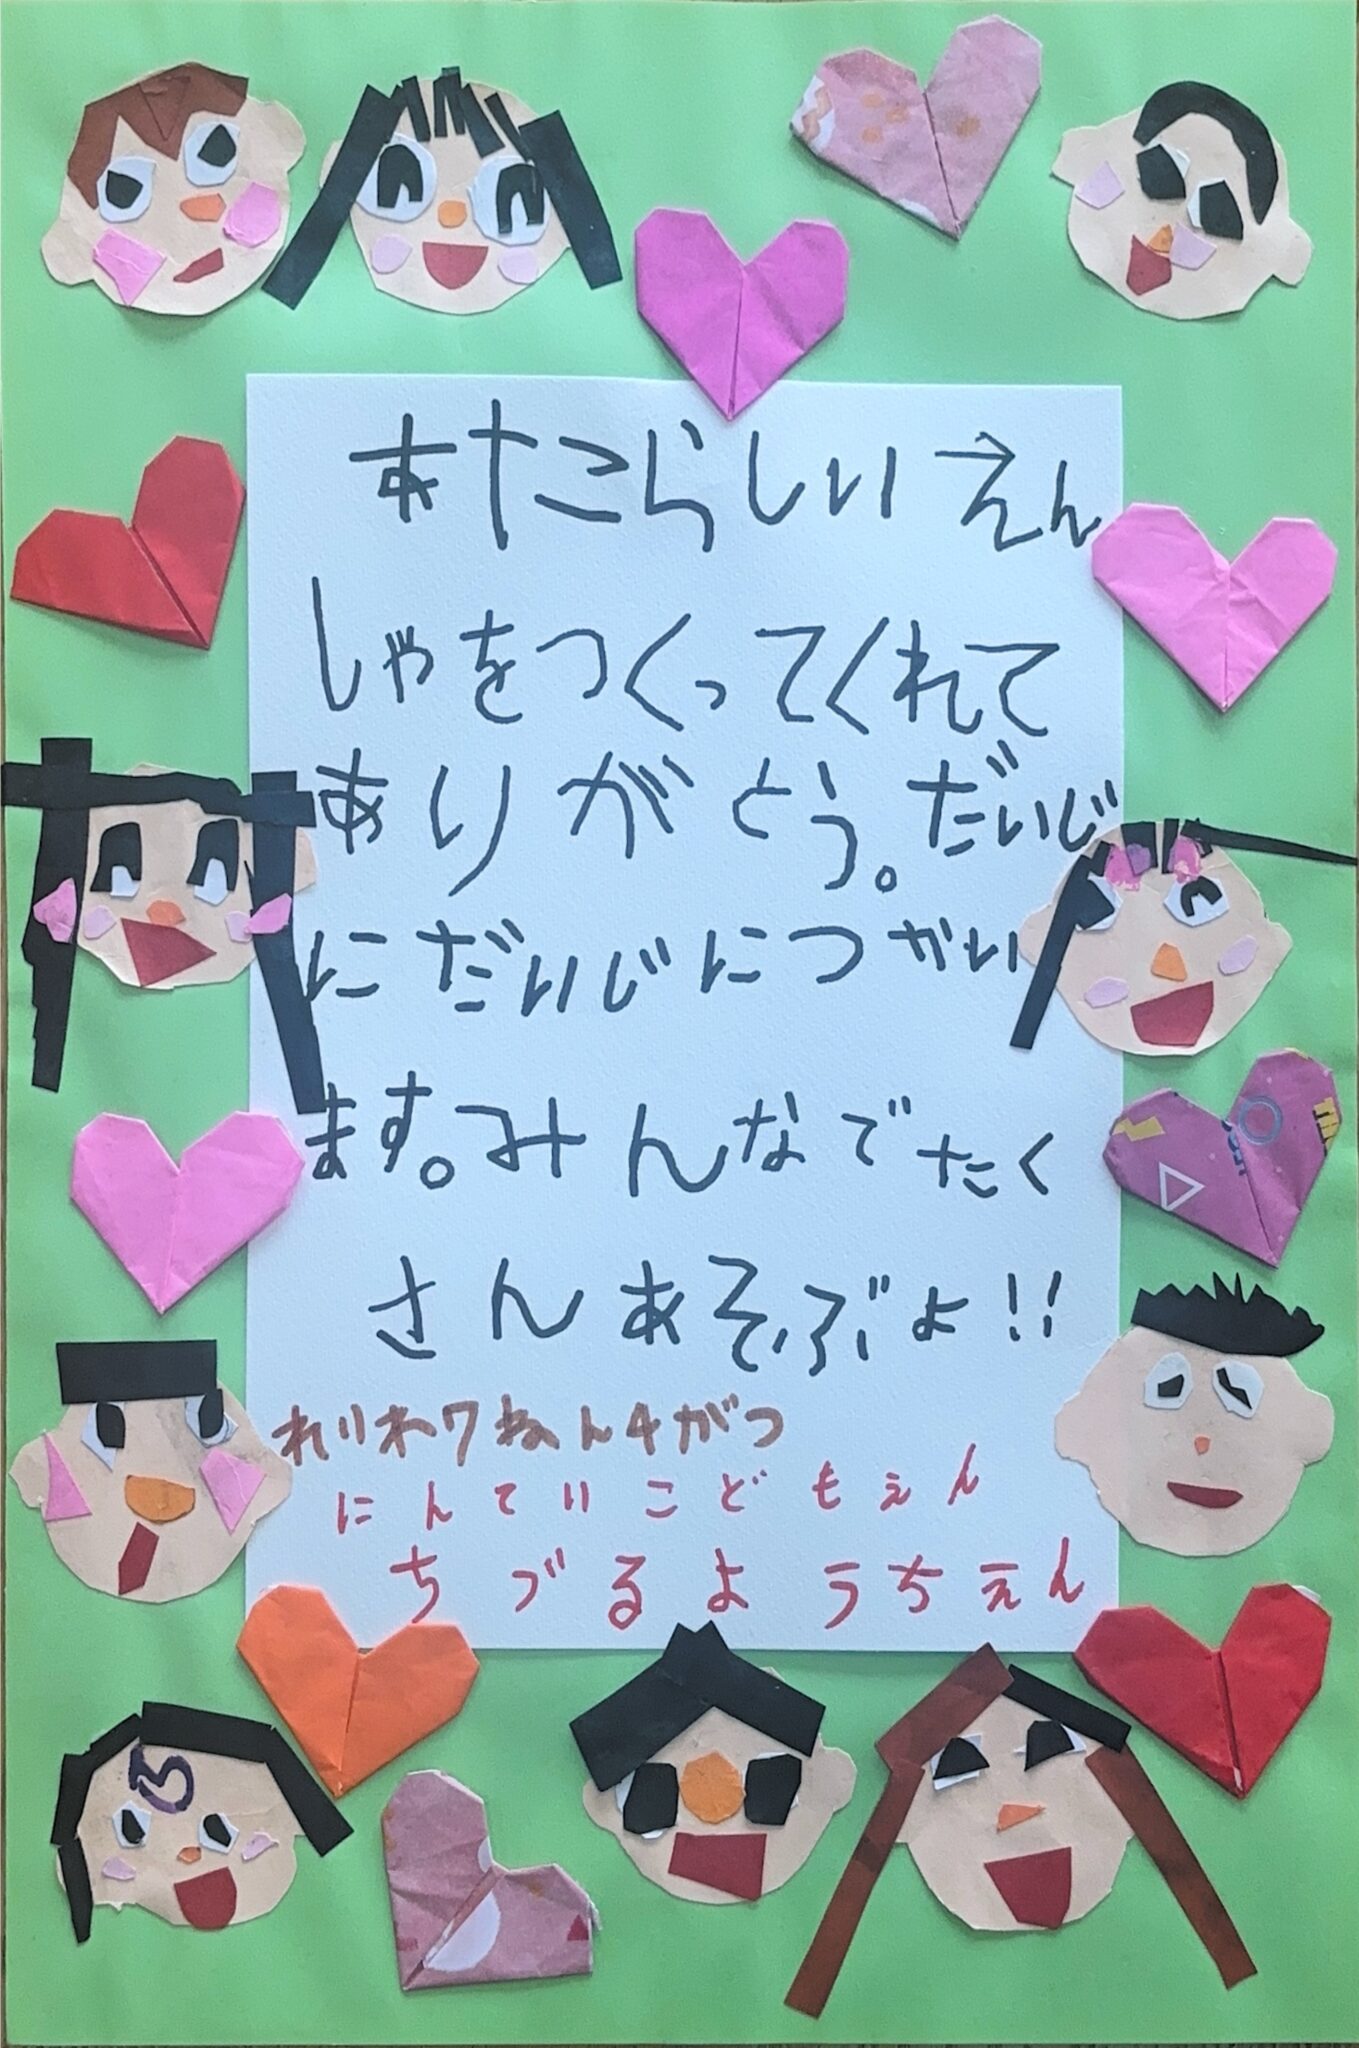 あたらしいえん
しゃをつくってくれて
ありがとう。だいじ
にだいじにつかい
ます。みんなでたく
さんあそぶよ!!
れいわ7ねん4がつ
にんていこどもえん
ちづるようちえん